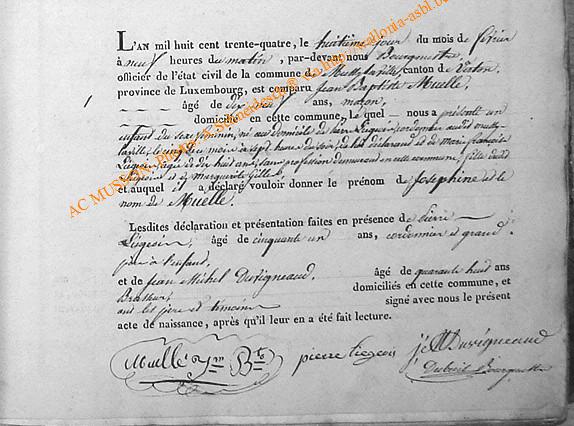 L'AN mil huit cent trente-quatre, le huitième jour du mois de février
à neuf heures du matin, par-devant nous Bourgmestre
officier de l'état civil de la commune de Mussy la ville, canton de Virton,
province de Luxembourg, est comparu Jean Baptiste Muelle
âgé de dix neuf ans, maçon,
domicilié en cette commune, le quel nous a présenté un
enfant du sexe féminin, né au domicile de Pierre Liégeois, cordonnier audit Mussy
laville, le cinq du mois à sept heures du soir, de lui déclarant et de Marie françoise
Liégeois, âgée de dix huit ans, sans profession demeurant en cette commune, fille dudit
Liégeois et de Marguerite Gillet,
et auquel il a déclaré vouloir donner le prénom de Josephine et le
nom de Muelle.
Lesdites déclaration et présentation faites en présence de Pierre
Liégeois, âgé de cinquante un ans, cordonnier et grand
père à l'enfant,
et de Jean Michel Duvigneaud, âgé de quarante huit ans
Brasseur, domiciliés en cette commune, et
ont les père et témoins signé avec nous le présent
acte de naissance, après qu'il leur en a été fait lecture.
Muelle Bte
pierre liegeois
JM Duvigneaud
Bourgmestre
AC MUSSON-Photo A. Schneidesch® via http://wallonia-asbl.b